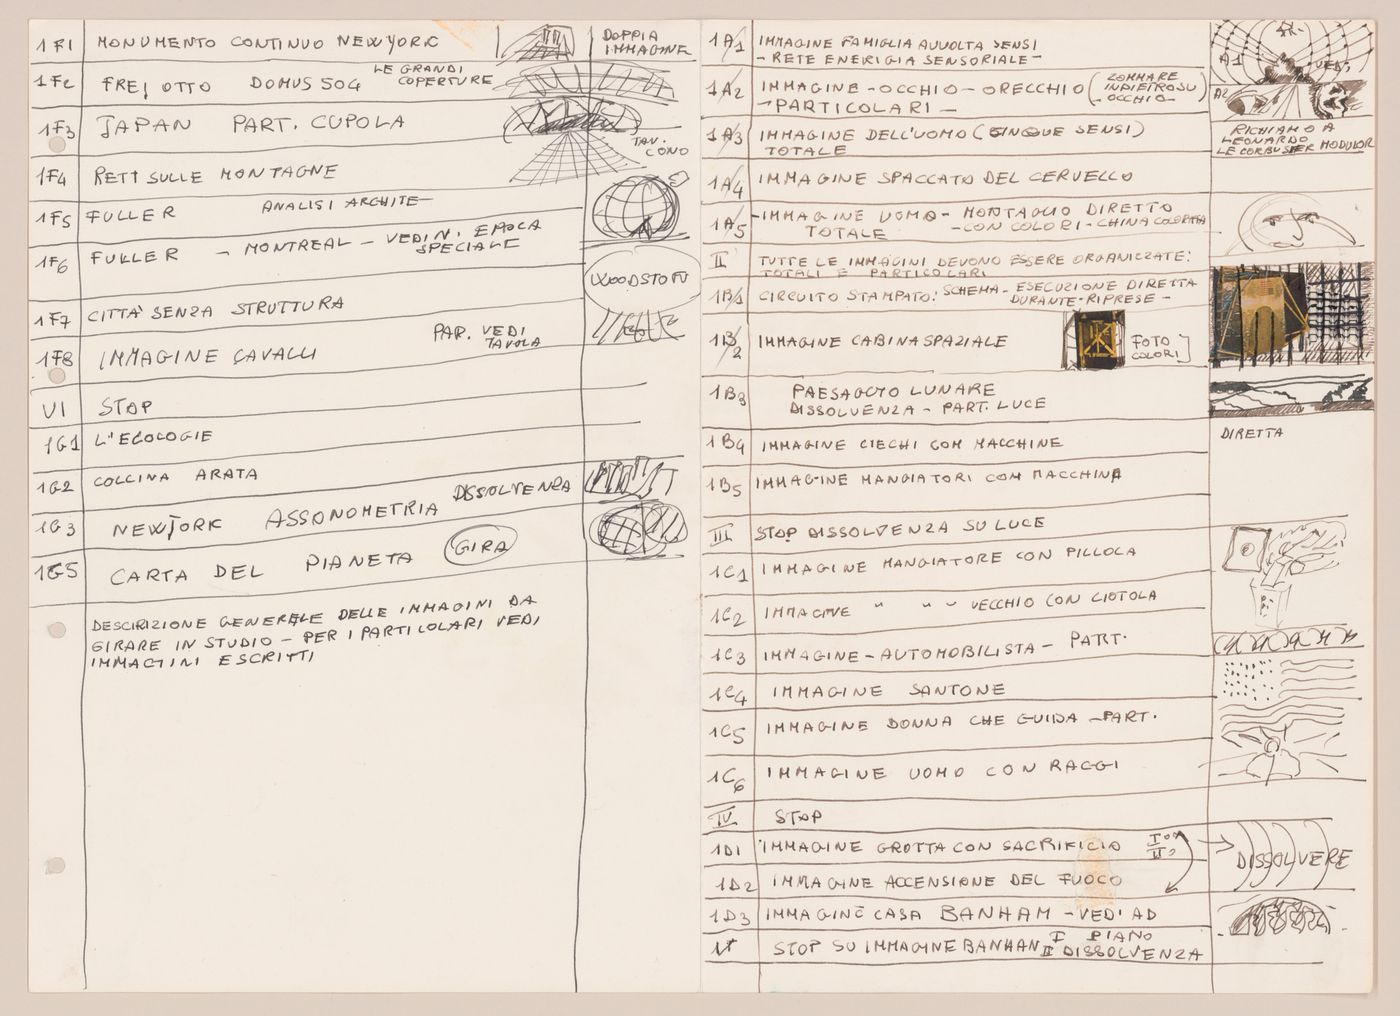 1F1 MONUMENTO CONTINUO NEW YORK DOPPIA
IMMAGINE
1F2 FREI OTTO DOMUS 504 LE GRANDI
COPERTURE
1F3 JAPAN PART. CUPOLA
TAV.
CONO
1F4 RETI SULLE MONTAGNE
1F5 FULLER ANALISI ARCHITE-
1F6 FULLER - MONTREAL - VEDI N. EPOCA
SPECIALE
WOODSTOCK
1F7 CITTA' SENZA STRUTTURA
1F8 IMMAGINE CAVALLI PAR. VEDI
TAVOLA
VI STOP
1G1 L'ECOLOGIE
1G2 COLLINA ARATA
1G3 NEW YORK ASSONOMETRIA DISSOLVENZA
1G5 CARTA DEL PIANETA GIRA
DESCIRIZIONE GENERELE DELLE IMMAGINI DA
GIRARE IN STUDIO - PER I PARTICOLARI VEDI
IMMAGINI E SCRITTI
1A1 IMMAGINE FAMIGLIA AVVOLTA SENSI
- RETE ENERIGIA SENSORIALE -
A1 VEDI
1A2 IMMAGINE - OCCHIO - ORECCHIO (ZOMMARE
INDIETRO SU
OCCHIO)
- PARTICOLARI -
A2
1A3 IMMAGINE DELL'UOMO (CINQUE SENSI)
TOTALE
RICHIAMO A
LEONARDO
LE CORBUSIER MODULOR
1A4 IMMAGINE SPACCATO DEL CERVELLO
1A5 - IMMAGINE UOMO - MONTAGIO DIRETTO
TOTALE - CON COLORI - CHINA COLORATA
II TUTTE LE IMMAGINI DEVONO ESSERE ORGANIZZATE:
TOTALI E PARTICOLARI
1B1 CIRCUITO STAMPATO: SCHEMA - ESECUZIONE DIRETTA
DURANTE - RIPRESE -
1B2 IMMAGINE CABINA SPAZIALE FOTO
COLORI
1B3 PAESAGGIO LUNARE
DISSOLVENZA - PART. LUCE
1B4 IMMAGINE CIECHI CON MACCHINE DIRETTA
1B5 IMMAGINE MANGIATORI CON MACCHINA
III STOP DISSOLVENZA SU LUCE
1C1 IMMAGINE MANGIATORE CON PILLOLA
1C2 IMMAGINE " " " VECCHIO CON CIOTOLA
1C3 IMMAGINE - AUTOMOBILISTA - PART.
1C4 IMMAGINE SANTONE
1C5 IMMAGINE DONNA CHE GUIDA - PART.
1C6 IMMAGINE UOMO CON RAGGI
IV STOP
1D1 IMMAGINE GROTTA CON SACRIFICIO I°
II°
DISSOLVERE
1D2 IMMAGINE ACCENSIONE DEL FUOCO
1D3 IMMAGINE CASA BANHAM - VEDI AD
V STOP SU IMMAGINE BANHAN I PIANO
II DISSOLVENZA